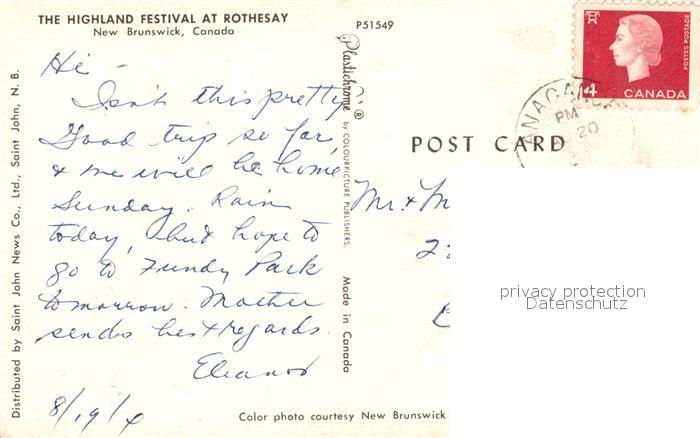 THE HIGHLAND FESTIVAL AT ROTHESAY
New Brunswick, Canada
P51549
Hi -
Isn't this pretty?
Good trip so far,
& we will be home
Sunday. Rain
today, but hope to
go to Fundy Park
tomorrow. Mother
sends best regards.
Eleanor
8/19/
Distributed by Saint John News Co., Ltd., Saint John, N. B.
Plastichrome ® by COLOURPICTURE PUBLISHERS.
Made in Canada
Color photo courtesy New Brunswick
POST CARD
Mr. & M
PM
20
4 CANADA
POSTES POSTAGE
privacy protection
Datenschutz